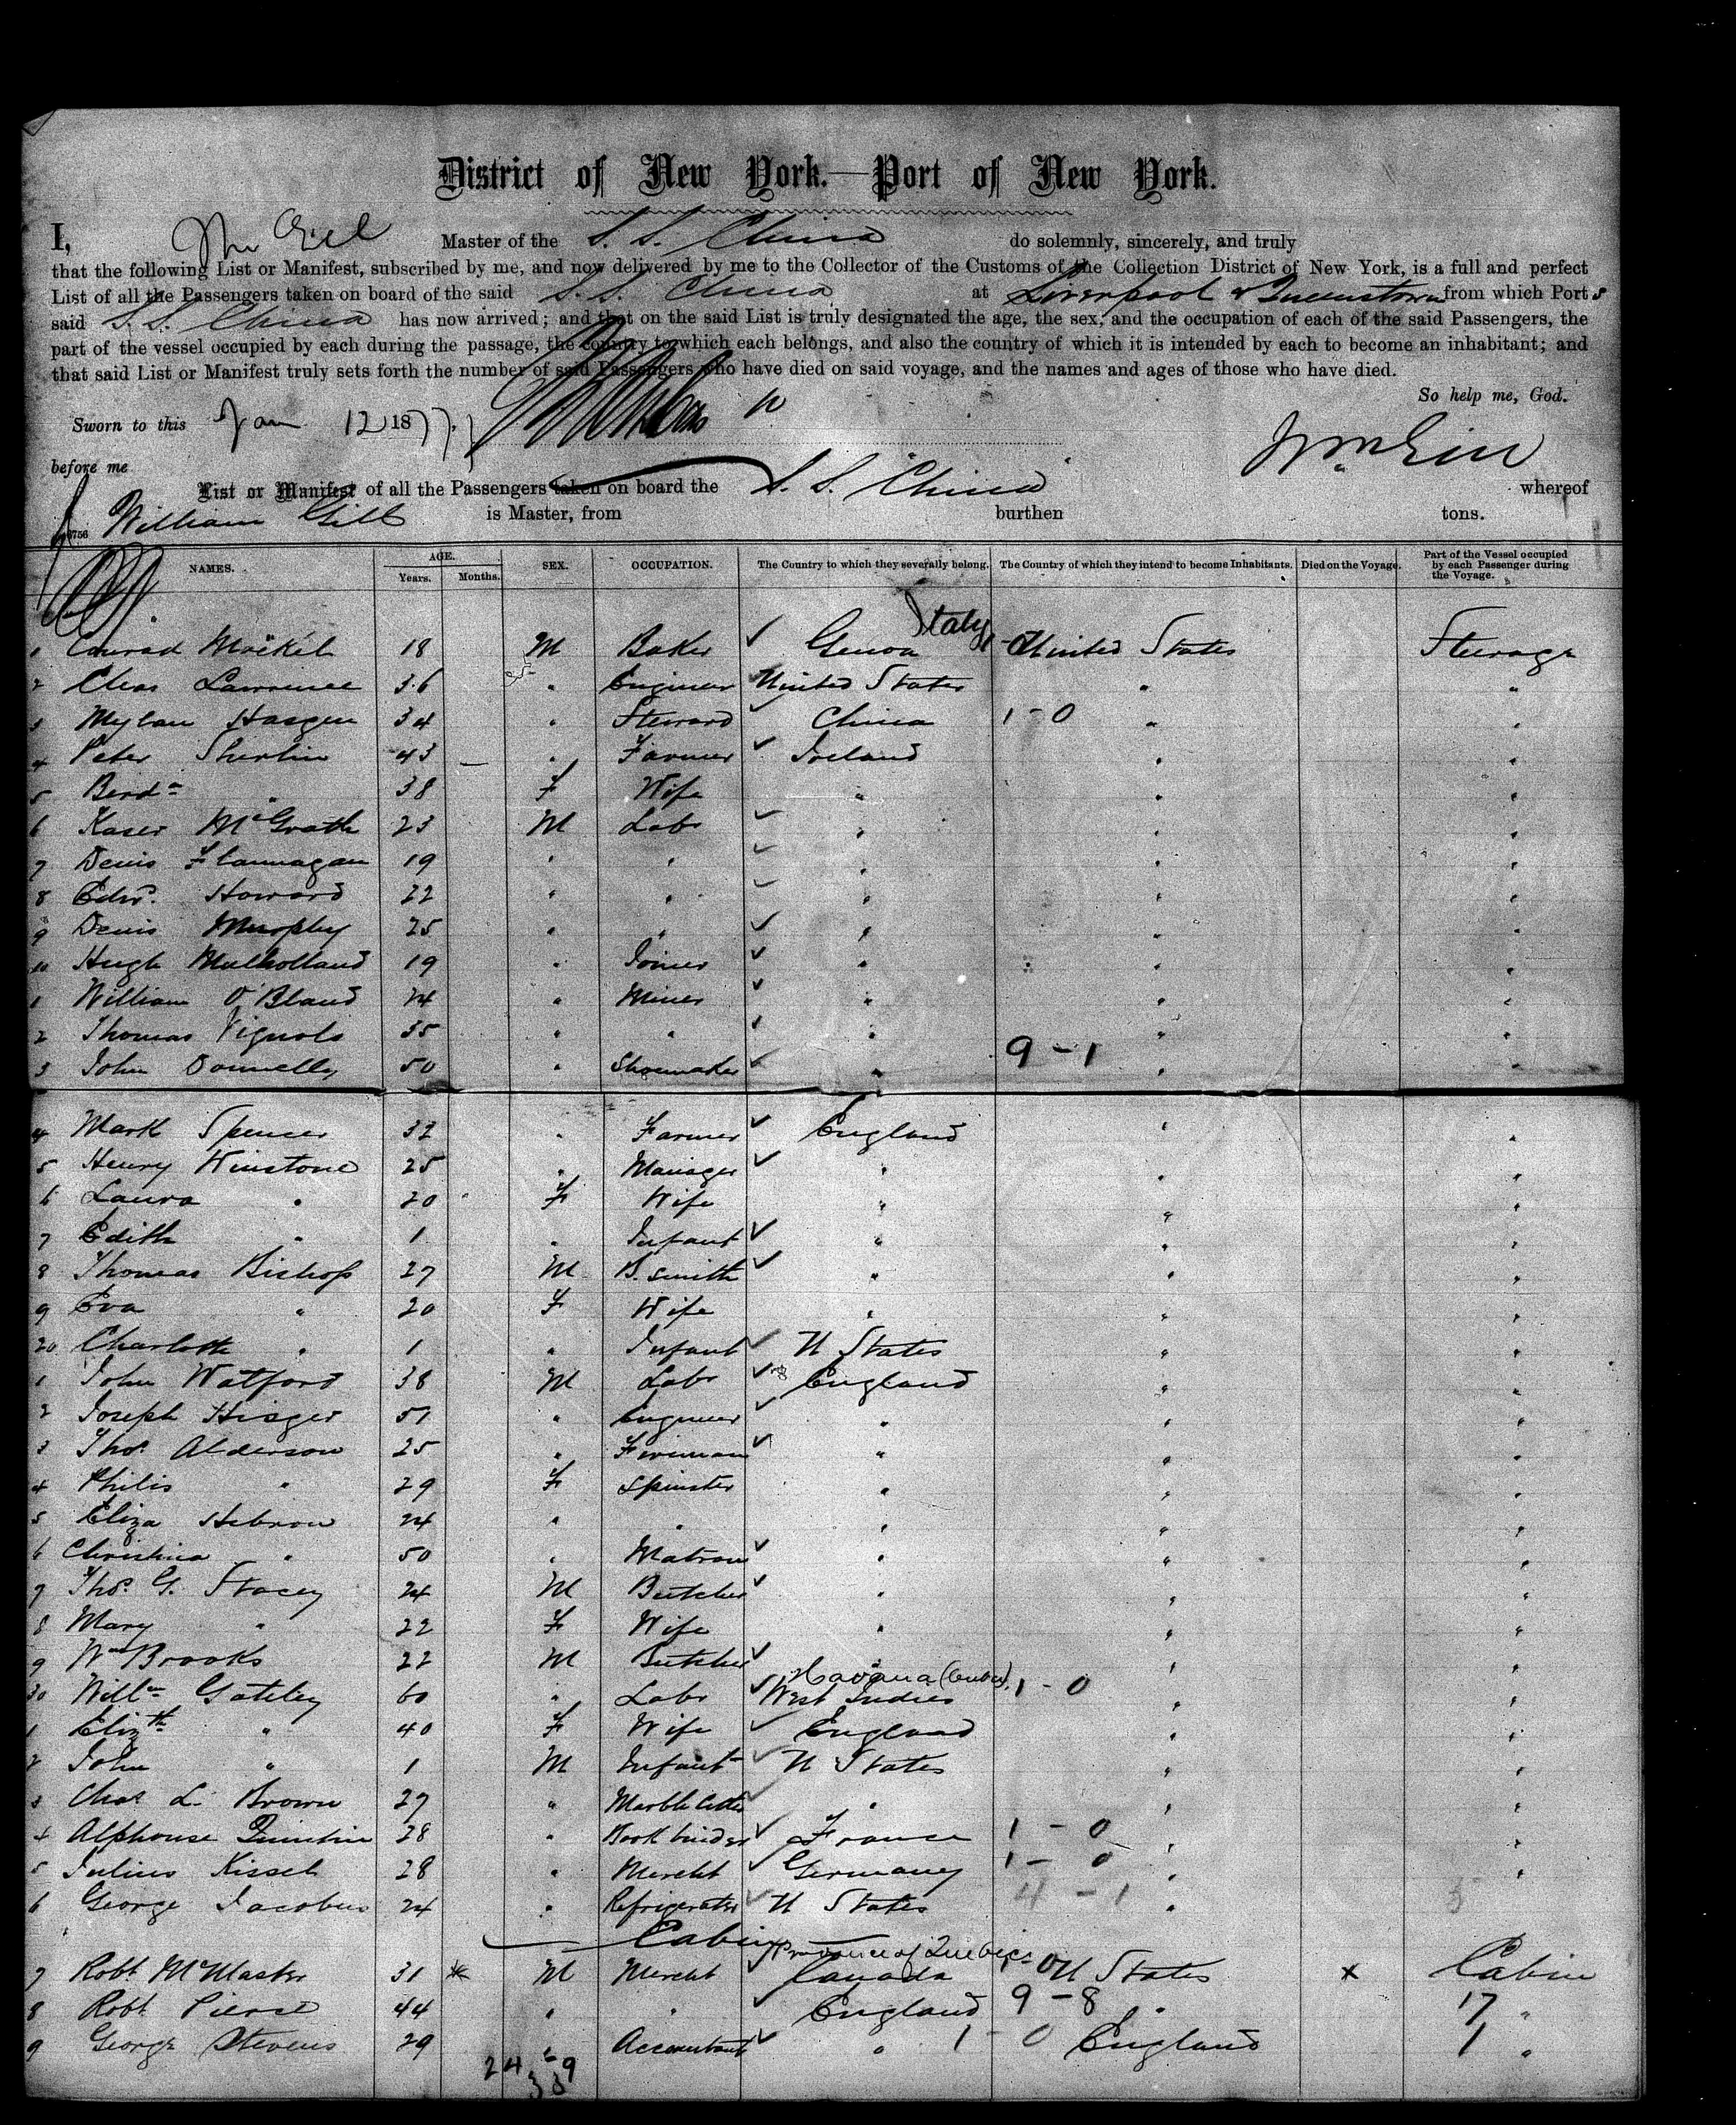 District of New York.—Port of New York.
I, Wm Gill Master of the S. S. China do solemnly, sincerely, and truly
that the following List or Manifest, subscribed by me, and now delivered by me to the Collector of the Customs of the Collection District of New York, is a full and perfect
List of all the Passengers taken on board of the said S. S. China at Liverpool & Queenstown from which Ports
said S. S. China has now arrived; and that on the said List is truly designated the age, the sex, and the occupation of each of the said Passengers, the
part of the vessel occupied by each during the passage, the country to which each belongs, and also the country of which it is intended by each to become an inhabitant; and
that said List or Manifest truly sets forth the number of said Passengers who have died on said voyage, and the names and ages of those who have died.
So help me, God.
Sworn to this Jan 12 1877.
Wm Gill
before me
List or Manifest of all the Passengers taken on board the S. S. China whereof
William Gill is Master, from burthen tons.
NAMES. AGE. Years. Months. SEX. OCCUPATION. The Country to which they severally belong. The Country of which they intend to become Inhabitants. Died on the Voyage. Part of the Vessel occupied by each Passenger during the Voyage.
Italy
1 Conrad Möckel 18 M Baker Genoa United States Steerage
2 Chas Lawrence 36 " Engineer United States " "
3 Mylan Hasgen 34 " Steward China 1-0 " "
4 Peter Sherlin 43 " Farmer Ireland " "
5 Bird " 38 F Wife " " "
6 Kaser McGrath 23 M Labr " " "
7 Denis Flannagan 19 " " " " "
8 Edwd. Howard 22 " " " " "
9 Denis Murphy 25 " " " " "
10 Hugh Mulholland 19 " Joiner " " "
1 William O'Bland 24 " Miner " " "
2 Thomas Vignols 35 " " " " "
3 John Donnelly 50 " Shoemaker " 9-1 " "
4 Mark Spencer 32 " Farmer England " "
5 Henry Winstone 25 " Manager " " "
6 Laura " 20 F Wife " " "
7 Edith " 1 " Infant " " "
8 Thomas Bishop 27 M B. smith " " "
9 Eva " 20 F Wife " " "
20 Charlotte " 1 " Infant U States " "
1 John Watford 38 M Labr England " "
2 Joseph Hisger 51 " Engineer " " "
3 Thos. Alderson 25 " Fireman " " "
4 Philis " 29 F Spinster " " "
5 Eliza Hebron 24 " " " " "
6 Christina " 50 " Matron " " "
7 Thos. G. Stacey 24 M Butcher " " "
8 Mary " 22 F Wife " " "
9 Wm Brooks 22 M Butcher " " "
Havana (Cuba)
30 Willm Gateley 60 " Labr West Indies 1-0 " "
1 Elizth " 40 F Wife England " "
2 John " 1 M Infant U States " "
3 Chas L. Brown 27 " Marble Cutter " " "
4 Alphonse 28 " Book binder France 1-0 " "
5 Julius Kissel 28 " Mercht Germany 1-0 " "
6 George Jacobus 24 " Refrigerator U States 4-1 "
Cabin
Province of Quebec
7 Robt McMaster 31 M Mercht Canada 1-0 U States x Cabin
8 Robt Pierse 44 " " England 9-8 " 17 "
9 George Stevens 29 " Accountant " 1-0 England 1 "
24